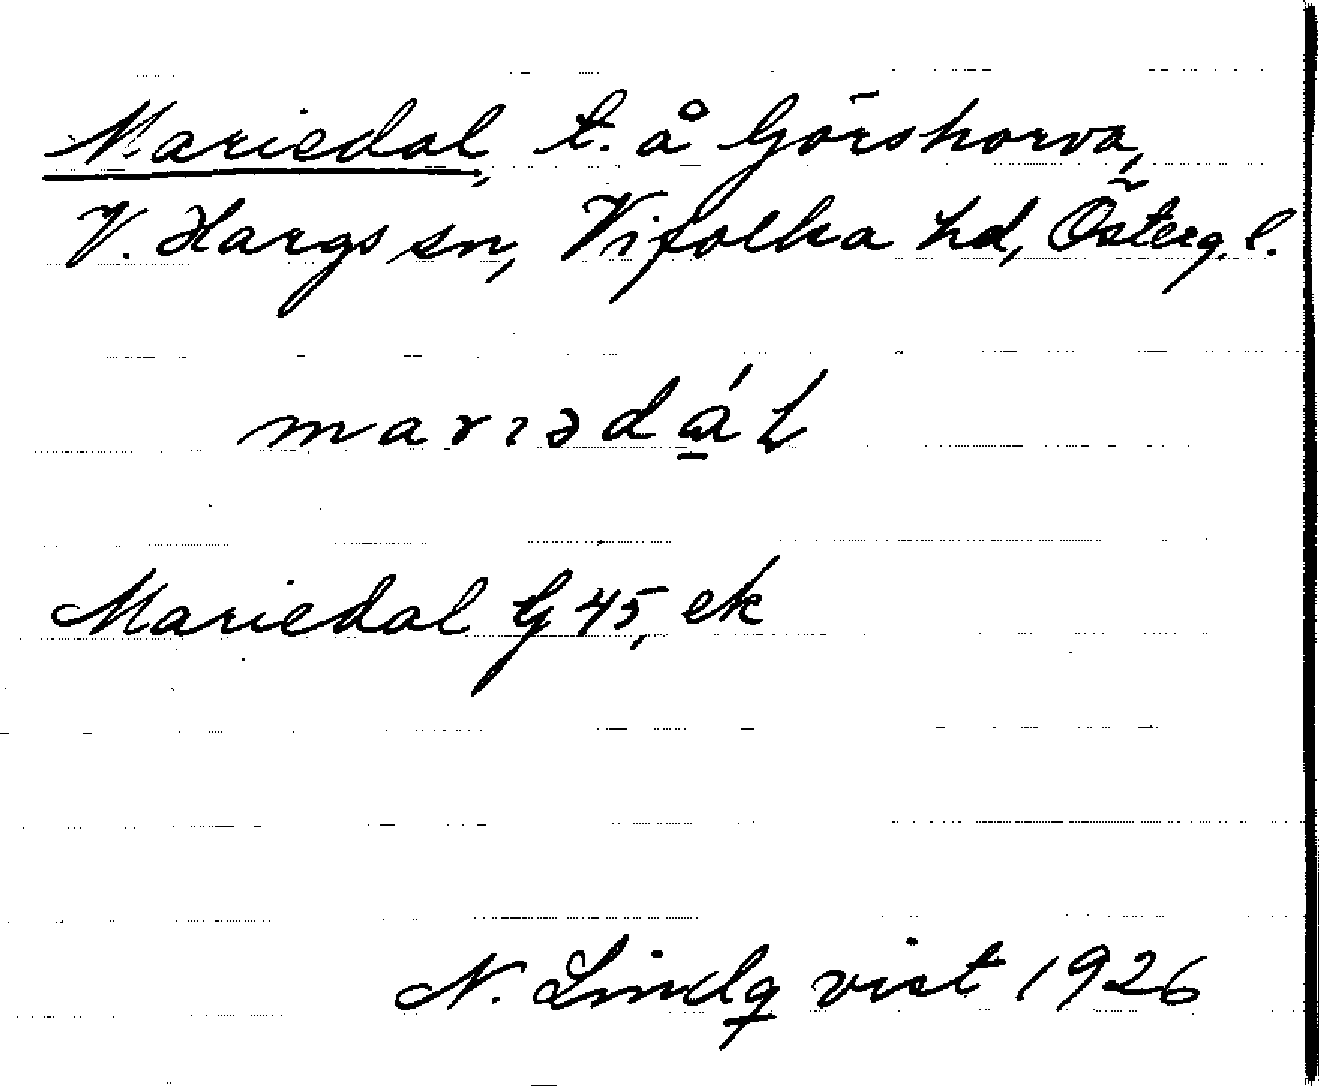 Mariedal, t. å Görshorva,
V. Hargs sn, Vifolka hd, Österg. l.
marıədá̲l
Mariedal G 45, ek
N. Lindqvist 1926